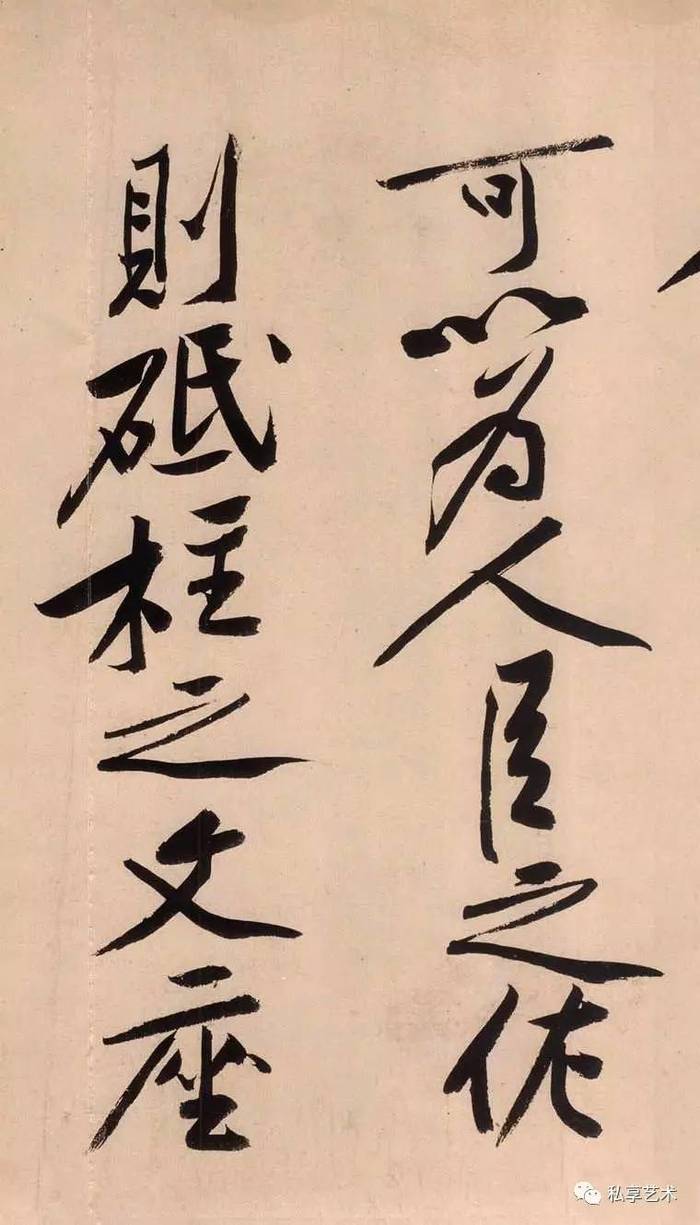 可以為人臣之佐
則砥柱之文座
私享艺术